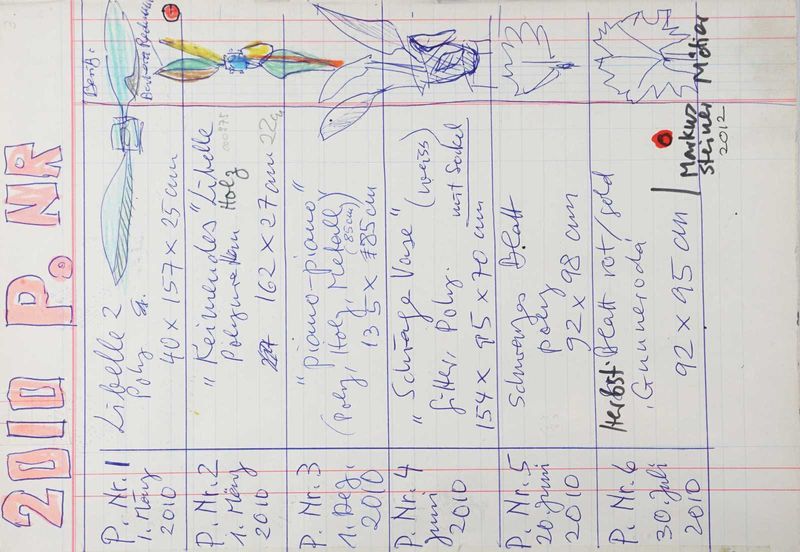 2010 P. NR
P. Nr. 1
1. März
2010
Libelle 2
Poly
40 x 157 x 25 cm
P. Nr. 2
1. März
2010
"Keimendes" Libelle
Holz
162 x 27 cm
P. Nr. 3
1. Dez.
2010
"piano-piano"
(Poly, Holz, Metall)
(85cm)
P. Nr. 4
Juni
2010
"Schräge Vase" (weiss)
Gitter, Poly. mit Sockel
154 x 95 x 70 cm
P. Nr. 5
20 Juni
2010
Schwarzes Blatt
poly
92 x 98 cm
P. Nr. 6
30. Juli
2010
Herbst Blatt rot/gold
92 x 95 cm
Markus
steiner
2012